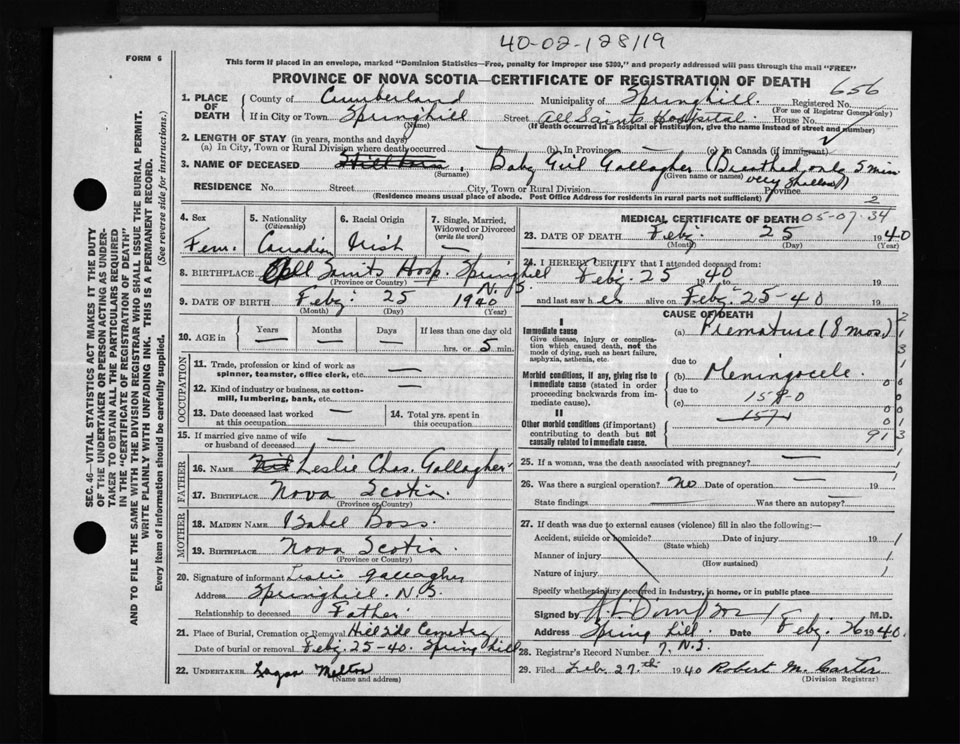 40-02-128/19
FORM 6
This form if placed in an envelope, marked "Dominion Statistics—Free, penalty for improper use $300," and properly addressed will pass through the mail "FREE"
PROVINCE OF NOVA SCOTIA—CERTIFICATE OF REGISTRATION OF DEATH
656
1. PLACE OF DEATH
County of Cumberland Municipality of Springhill. Registered No.
(For use of Registrar General only)
If in City or Town Springhill Street All Saints Hospital. House No.
(Name) (If death occurred in a hospital or institution, give the name instead of street and number)
2. LENGTH OF STAY (in years, months and days)
(a) In City, Town or Rural Division where death occurred (b) In Province (c) In Canada (if immigrant)
3. NAME OF DECEASED Stillborn Baby Girl Gallagher (Breathed only 5 min
(Surname) (Given name or names) very shallow)
RESIDENCE No. Street City, Town or Rural Division Province
(Residence means usual place of abode. Post Office Address for residents in rural parts not sufficient) 2
4. Sex Fem.
5. Nationality (Citizenship) Canadian
6. Racial Origin Irish
7. Single, Married, Widowed or Divorced (write the word) —
8. BIRTHPLACE All Saints Hosp. Springhill N.S.
(Province or Country)
9. DATE OF BIRTH Feby: 25 1940
(Month) (Day) (Year)
10. AGE in Years Months Days If less than one day old
— — — hrs. or 5 min.
OCCUPATION
11. Trade, profession or kind of work as spinner, teamster, office clerk, etc. —
12. Kind of industry or business, as cotton-mill, lumbering, bank, etc. —
13. Date deceased last worked at this occupation —
14. Total yrs. spent in this occupation
15. If married give name of wife or husband of deceased —
FATHER
16. NAME Leslie Chas. Gallagher
17. BIRTHPLACE Nova Scotia.
(Province or Country)
MOTHER
18. MAIDEN NAME Isabel Boss.
19. BIRTHPLACE Nova Scotia.
(Province or Country)
20. Signature of informant Leslie Gallagher
Address Springhill. N.S.
Relationship to deceased Father.
21. Place of Burial, Cremation or Removal Hillside Cemetry
Date of burial or removal Feby: 25-40. Spring hill
22. UNDERTAKER Melton
(Name and address)
MEDICAL CERTIFICATE OF DEATH 05-07-34
23. DATE OF DEATH Feby: 25 1940
(Month) (Day) (Year)
24. I HEREBY CERTIFY that I attended deceased from:
Feby: 25 40 19 to 19
and last saw her alive on Feby: 25-40 19
CAUSE OF DEATH
I
Immediate cause
Give disease, injury or complication which caused death, not the mode of dying, such as heart failure, asphyxia, asthenia, etc.
(a) Premature (8 mos.)
due to
Morbid conditions, if any, giving rise to immediate cause (stated in order proceeding backwards from immediate cause).
(b) Meningocele.
due to
(c) 158-0
II
157
Other morbid conditions (if important) contributing to death but not causally related to immediate cause.
913
25. If a woman, was the death associated with pregnancy? —
26. Was there a surgical operation? no Date of operation — 19
State findings — Was there an autopsy? —
27. If death was due to external causes (violence) fill in also the following:—
Accident, suicide or homicide? Date of injury 19
(State which)
Manner of injury
(How sustained)
Nature of injury
Specify whether injury occurred in industry, in home, or in public place
Signed by M.D.
Address Spring hill. Date Feby. 26 1940.
28. Registrar's Record Number 7. N.S.
29. Filed Feb. 27th 1940 Robert M. Carter
(Division Registrar)
SEC. 46—VITAL STATISTICS ACT MAKES IT THE DUTY
OF THE UNDERTAKER OR PERSON ACTING AS UNDER-
TAKER TO OBTAIN ALL THE PARTICULARS REQUIRED
IN THE "CERTIFICATE OF REGISTRATION OF DEATH"
AND TO FILE THE SAME WITH THE DIVISION REGISTRAR WHO SHALL ISSUE THE BURIAL PERMIT.
WRITE PLAINLY WITH UNFADING INK. THIS IS A PERMANENT RECORD.
Every item of information should be carefully supplied. (See reverse side for instructions.)